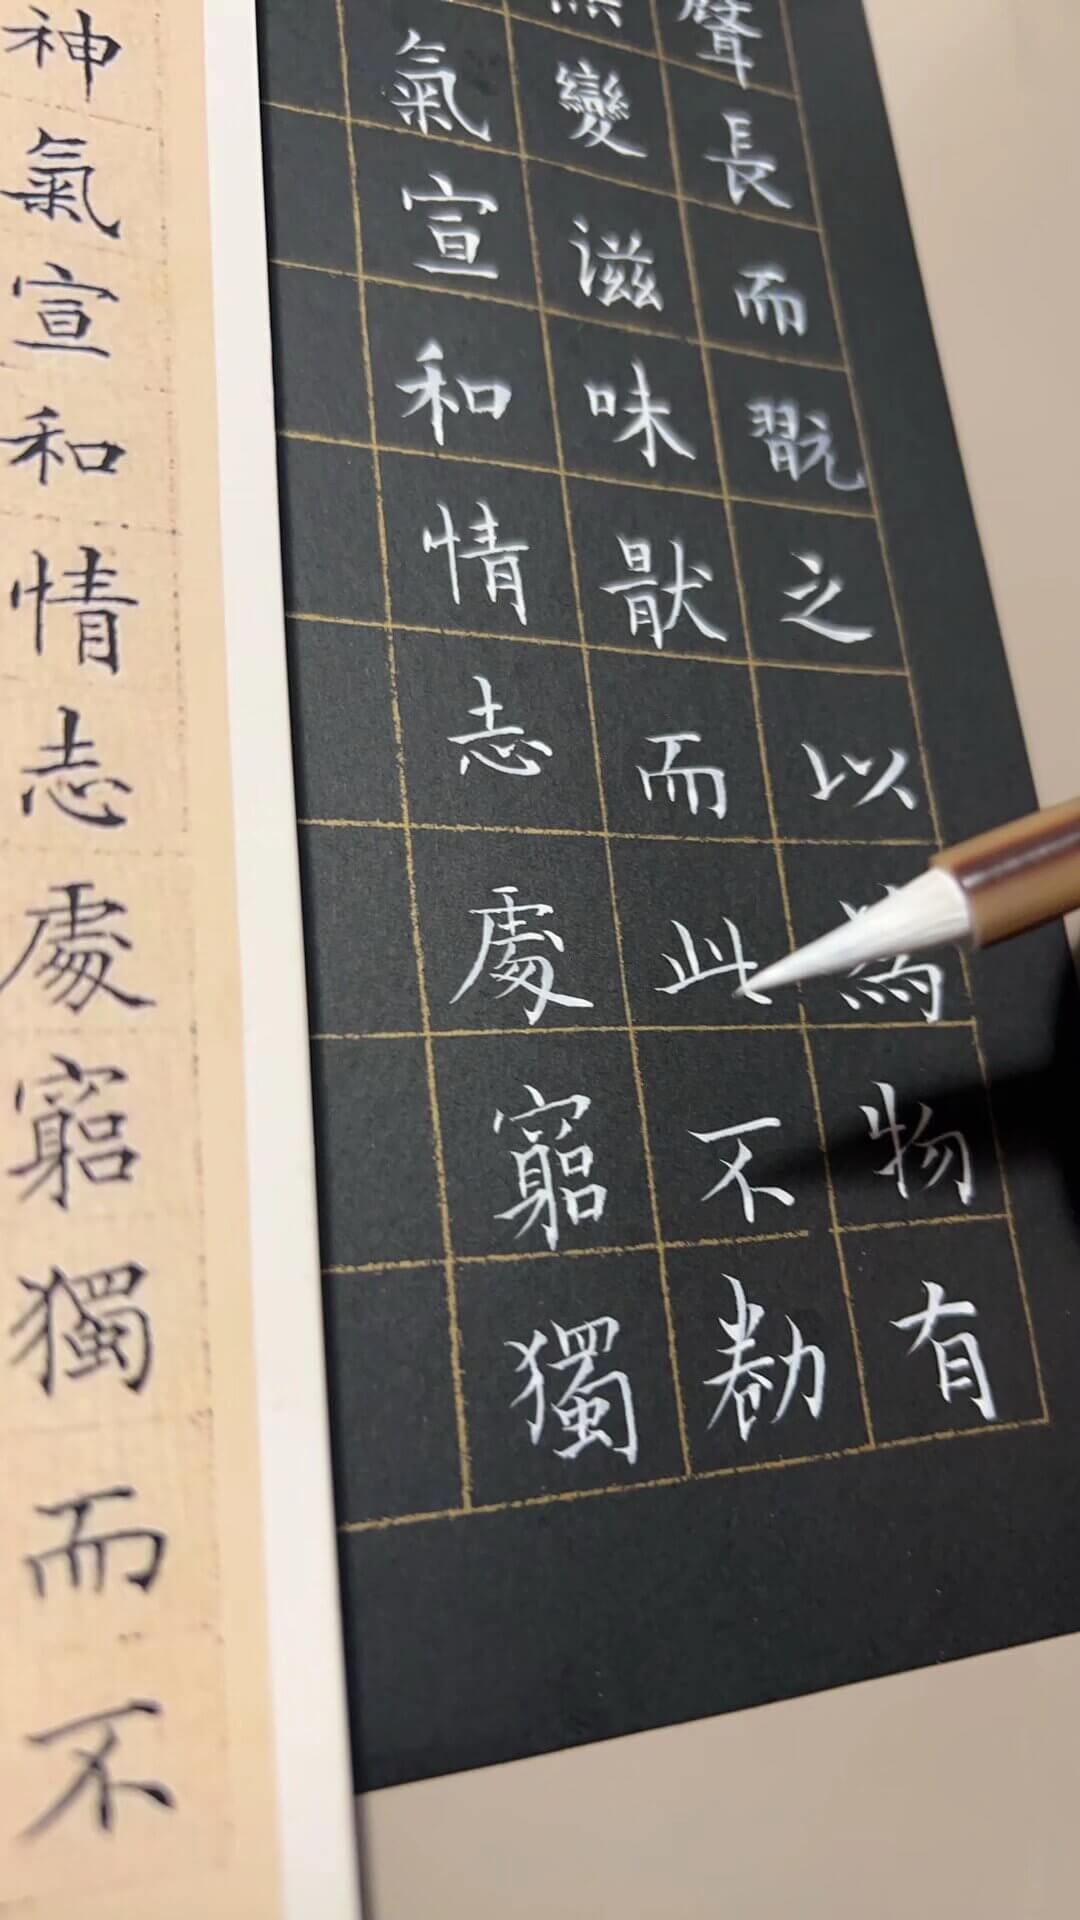 聲長而翫之以為物有
變滋味猒而此不勌
氣宣和情志處窮獨
神氣宣和情志處窮獨而不